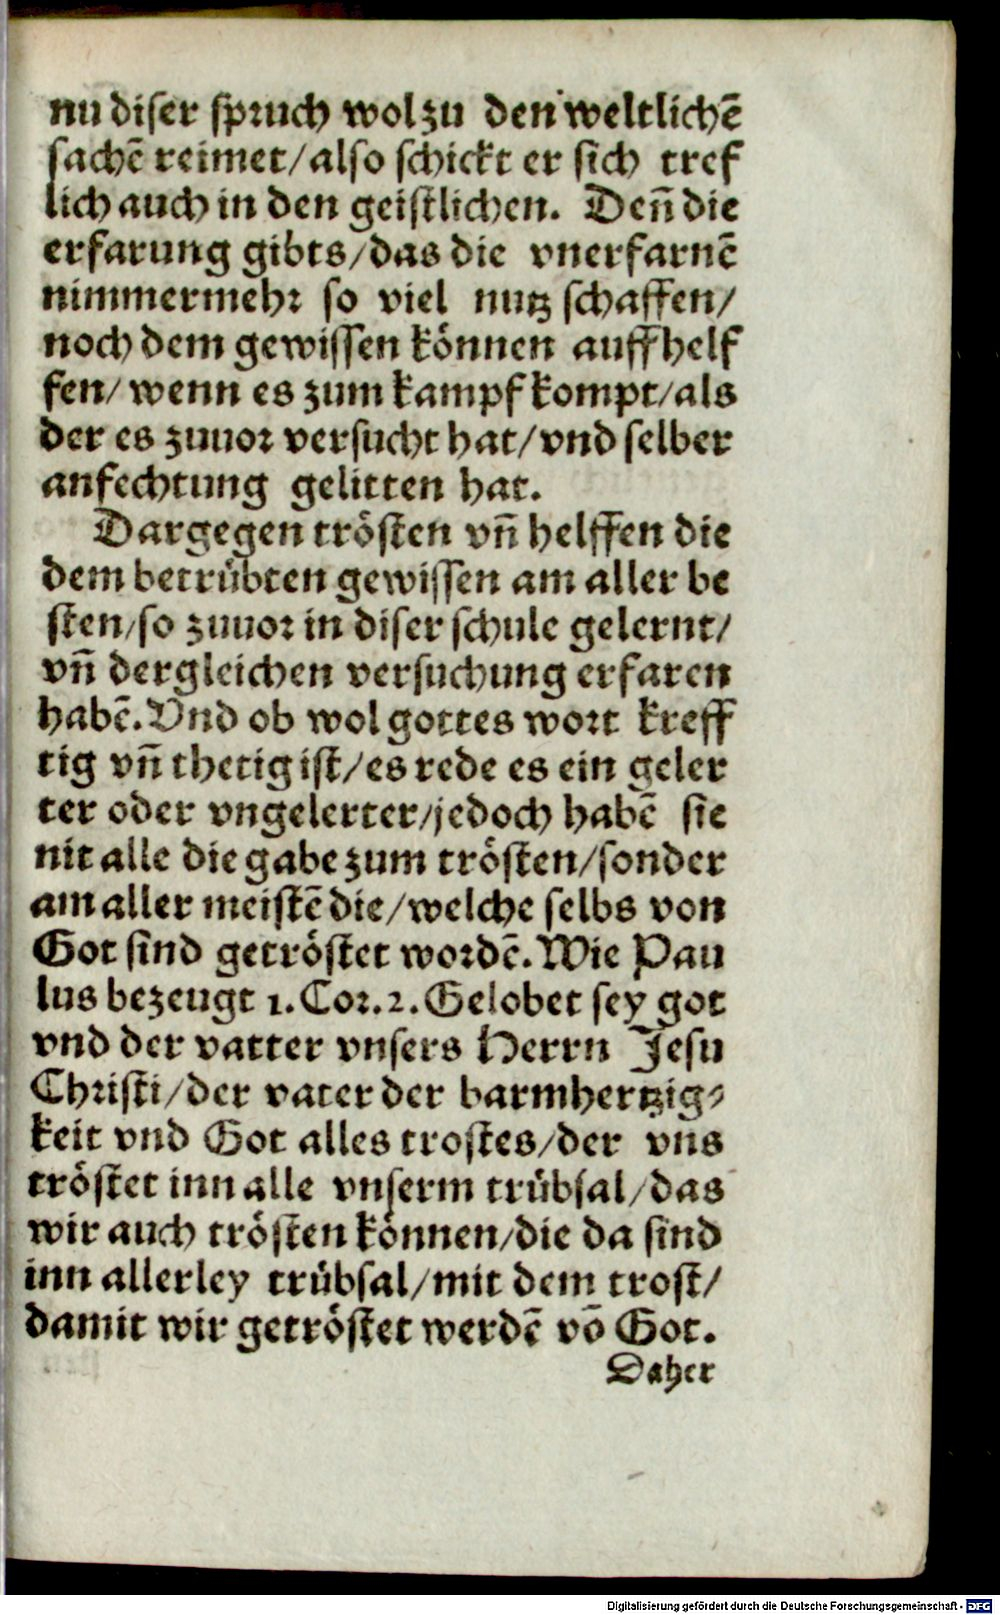 nu diser spruch wol zu den weltlichē
sachē reimet/also schickt er sich tref
lich auch in den geistlichen. Deñ die
erfarung gibts/das die vnerfarnē
nimmermehr so viel nutz schaffen/
noch dem gewissen können auffhelf
fen/wenn es zum kampf kompt/als
der es zuuor versucht hat/vnd selber
anfechtung gelitten hat.
Dargegen trösten vñ helffen die
dem betrübten gewissen am aller be
sten/so zuuor in diser schule gelernt/
vñ dergleichen versuchung erfaren
habē. Vnd ob wol gottes wort kreff
tig vñ thetig ist/es rede es ein geler
ter oder vngelerter/jedoch habē sie
nit alle die gabe zum trösten/sonder
am aller meistē die/welche selbs von
Got sind getröstet wordē. Wie Pau
lus bezeugt 1. Cor. 2. Gelobet sey got
vnd der vatter vnsers Herrn Jesu
Christi/der vater der barmhertzig⸗
keit vnd Got alles trostes/der vns
tröstet inn alle vnserm trübsal/das
wir auch trösten können/die da sind
inn allerley trübsal/mit dem trost/
damit wir getröstet werdē vō Got.
Daher
Digitalisierung gefördert durch die Deutsche Forschungsgemeinschaft - DFG